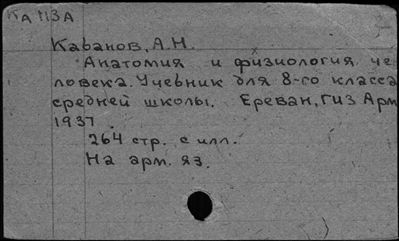 Ка 113А
Кабанов, А.Н.
Анатомия и физиология че
ловека. Учебник для 8-го класса
средней школы. Ереван, Гиз Арм
1937.
264 стр. с илл.
На арм. яз.